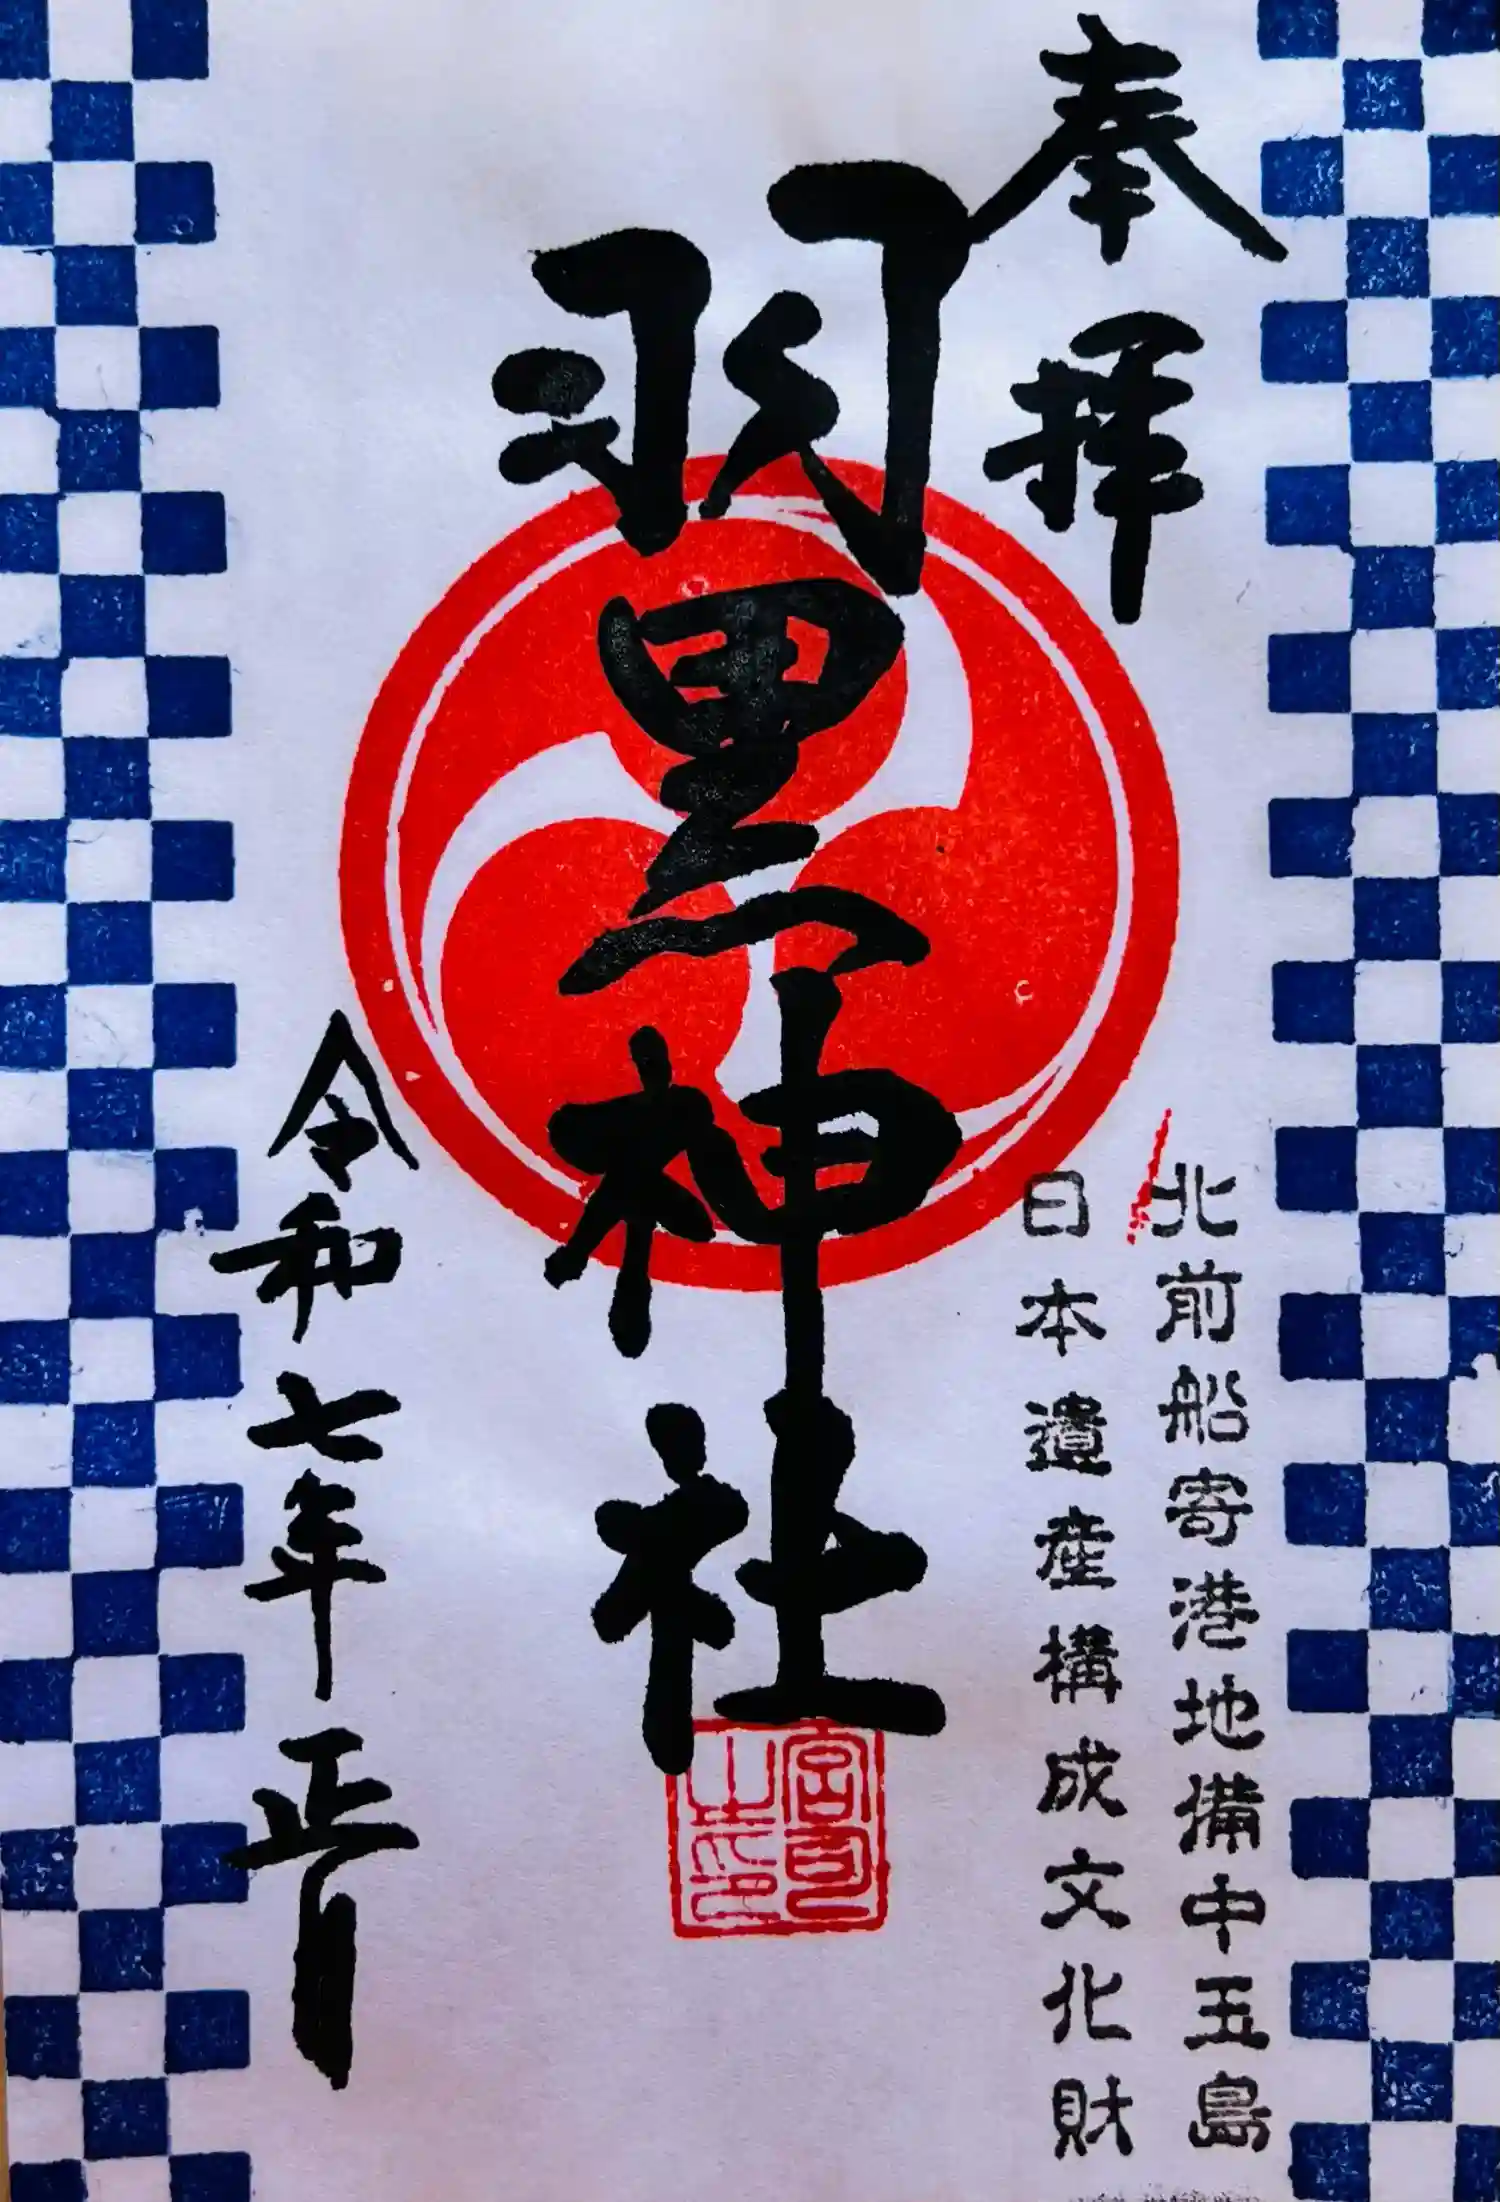 奉拝
北前船寄港地備中玉島
日本遺産構成文化財
羽黒神社
令和七年正月